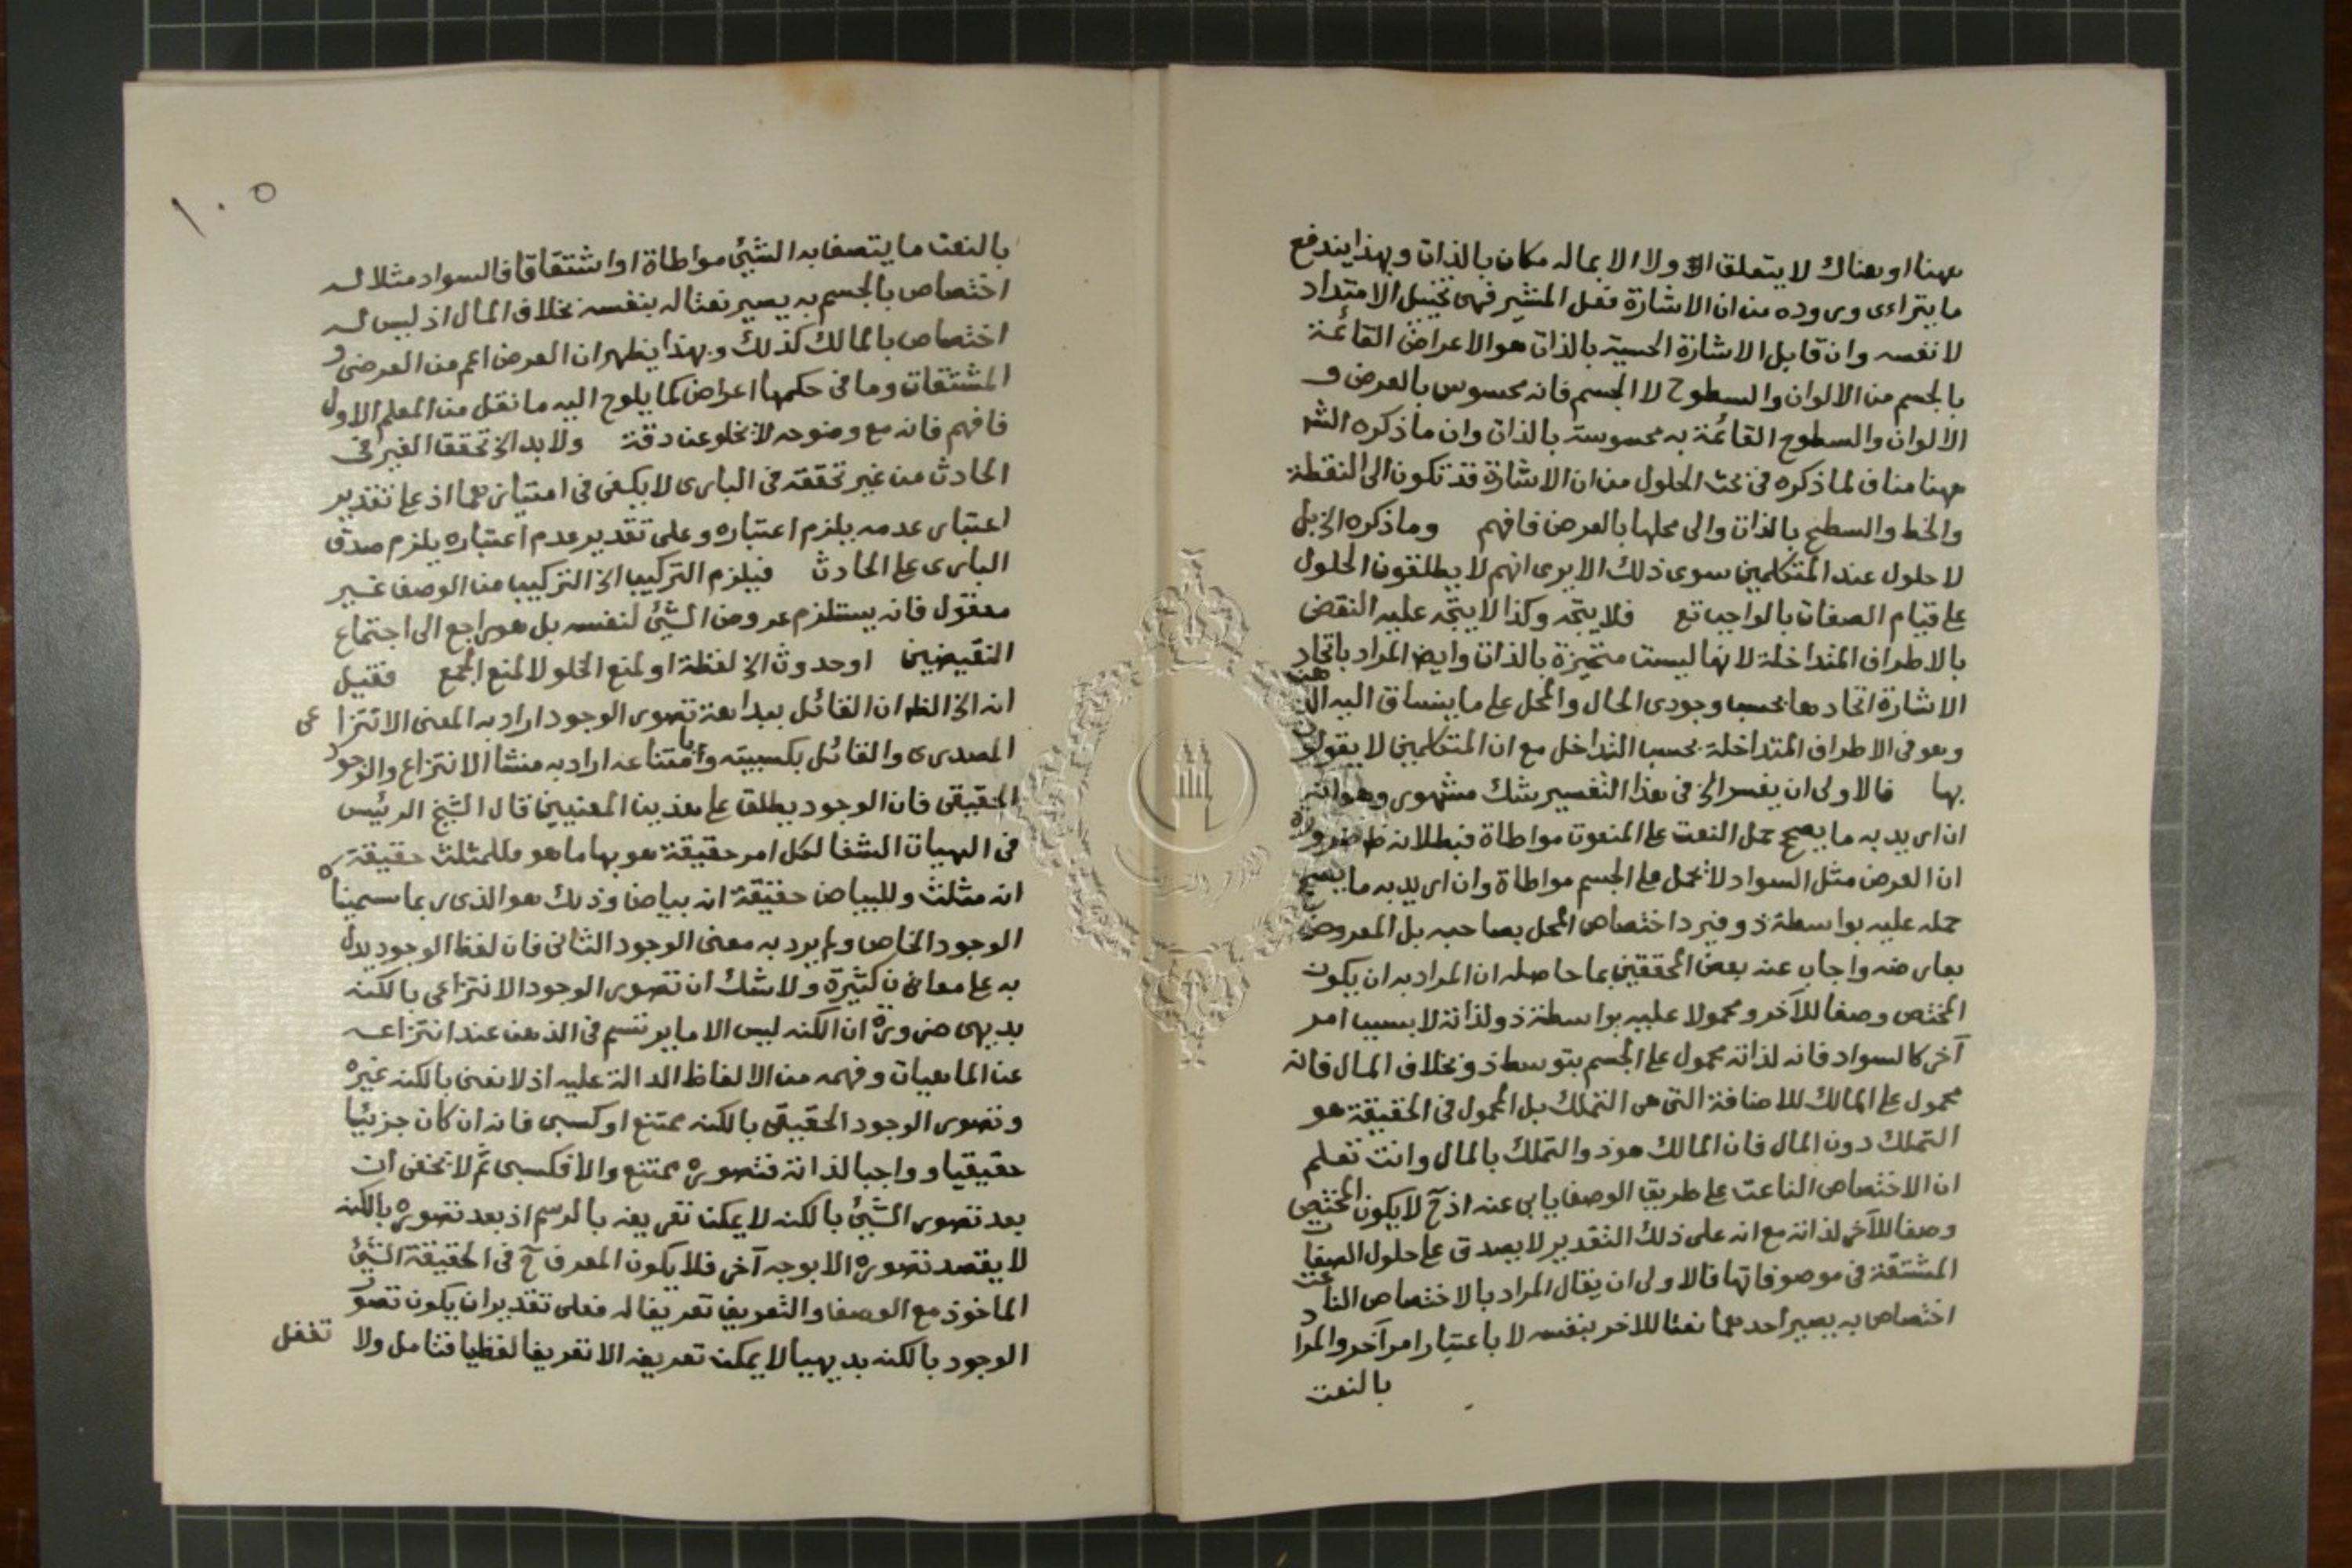 ههنا او هناك لا يتعلق اولا الا بماله مكان بالذات وبهذا يندفع
ما يتراءى وروده من ان الاشارة فعل المشير فهى تخييل الامتداد
لا نفسه وان قابل الاشارة الحسية بالذات هو الاعراض القائمة
بالجسم من الالوان والسطوح لا الجسم فانه محسوس بالعرض و
الالوان والسطوح القائمة به محسوسة بالذات وان ما ذكره الش
ههنا مناف لما ذكره فى بحث الحلول من ان الاشارة قد تكون الى النقطة
والخط والسطح بالذات والى محلها بالعرض فافهم وما ذكره الخ بل
لا حلول عند المتكلمين سوى ذلك الا يرى انهم لا يطلقون الحلول
على قيام الصفات بالواجب تع فلا يتجه وكذا لا يتجه عليه النقض
بالاطراف المتداخلة لانها ليست متحيزة بالذات وايض المراد باتحاد
الاشارة اتحادها بحسب وجودى الحال والمحل على ما ينساق اليه الذهن
وهو فى الاطراف المتداخلة بحسب التداخل مع ان المتكلمين لا يقولون
بها فالاولى ان يفسر الخ فى هذا التفسير شك مشهور وهو انه
ان اريد به ما يصح حمل النعت على المنعوت مواطاة فبطلانه ظ ضرورة
ان العرض مثل السواد لا يحمل على الجسم مواطاة وان اريد به ما يصح
حمله عليه بواسطة ذو فيرد اختصاص المحل بصاحبه بل المعروض
بعارضه واجاب عنه بعض المحققين بما حاصله ان المراد به ان يكون
المختص وصفا للآخر ومحمولا عليه بواسطة ذو لذاته لا بسبب امر
آخر كالسواد فانه لذاته محمول على الجسم بتوسط ذو بخلاف المال فانه
محمول على المالك للاضافة التى هى التملك بل المحمول فى الحقيقة هو
التملك دون المال فان المالك هو ذو التملك بالمال وانت تعلم
ان الاختصاص الناعت على طريق الوصف يابى عنه اذ ح لا يكون المختص
وصفا للآخر لذاته مع انه على ذلك التقدير لا يصدق على حلول الصفات
المشتقة فى موصوفاتها فالاولى ان يقال المراد بالاختصاص الناعت
اختصاص به يصير احدهما نعتا للاخر بنفسه لا باعتبار امر آخر والمراد
بالنعت
١٠٥
بالنعت ما يتصف به الشيئ مواطاة او اشتقاقا فالسواد مثلا له
اختصاص بالجسم به يصير نعتا له بنفسه بخلاف المال اذ ليس له
اختصاص بالمالك كذلك وبهذا يظهر ان العرض اعم من العرضى و
المشتقات وما فى حكمها اعراض كما يلوح اليه ما نقل من المعلم الاول
فافهم فانه مع وضوحه لا يخلو عن دقة ولا بد الخ تحقق الغير فى
الحادث من غير تحققه فى البارى لا يكفى فى امتيازهما اذ على تقدير
اعتبار عدمه يلزم اعتباره وعلى تقدير عدم اعتباره يلزم صدق
البارى على الحادث فيلزم التركيب الخ التركيب من الوصف غير
معقول فانه يستلزم عروض الشيئ لنفسه بل هو راجع الى اجتماع
النقيضين او حدوث الخ لفظة او لمنع الخلو لا لمنع الجمع فقيل
انه الخ الظ ان القائل ببداهة تصور الوجود اراد به المعنى الانتزاعى
المصدرى والقائل بكسبيته وبامتناعه اراد به منشأ الانتزاع والوجود
الحقيقى فان الوجود يطلق على هذين المعنيين قال الشيخ الرئيس
فى الهيات الشفا لكل امر حقيقة هو بها ما هو فللمثلث حقيقة
انه مثلث وللبياض حقيقة انه بياض وذلك هو الذى ربما سميناه
الوجود الخاص ولم يرد به معنى الوجود الثانى فان لفظ الوجود يدل
به على معانى كثيرة ولا شك ان تصور الوجود الانتزاعى بالكنه
بديهى ضرورة ان الكنه ليس الا ما يرتسم فى الذهن عند انتزاعه
عن الماهيات وفهمه من الالفاظ الدالة عليه اذ لا نعنى بالكنه غيره
وتصور الوجود الحقيقى بالكنه ممتنع او كسبى فانه ان كان جزئيا
حقيقيا وواجبا لذاته فتصوره ممتنع والا فكسبى ثم لا يخفى ان
بعد تصور الشيئ بالكنه لا يمكن تعريفه بالرسم اذ بعد تصوره بالكنه
لا يقصد تصوره الا بوجه آخر فلا يكون المعرف ح فى الحقيقة الشيئ
الماخوذ مع الوصف والتعريف تعريفا له فعلى تقدير ان يكون تصور
الوجود بالكنه بديهيا لا يمكن تعريفه الا تعريفا لفظيا فتامل ولا تغفل